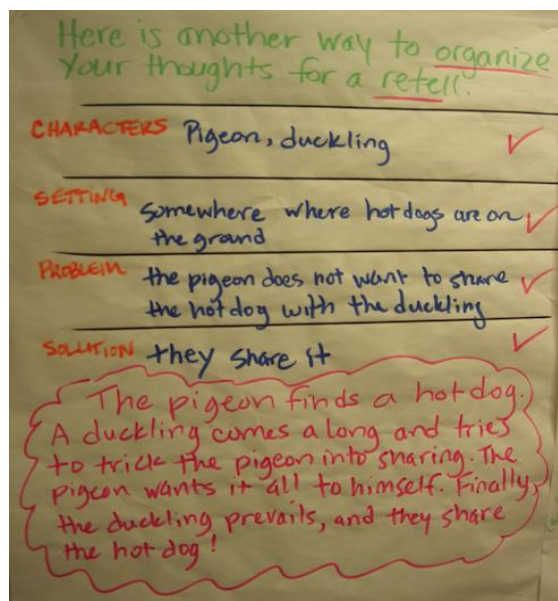 Here is another way to organize
your thoughts for a retell.
CHARACTERS Pigeon, duckling
SETTING somewhere where hotdogs are on
the ground
PROBLEM the pigeon does not want to share
the hotdog with the duckling
SOLUTION they share it
The pigeon finds a hotdog.
A duckling comes along and tries
to trick the pigeon into sharing. The
pigeon wants it all to himself. Finally,
the duckling prevails, and they share
the hotdog!